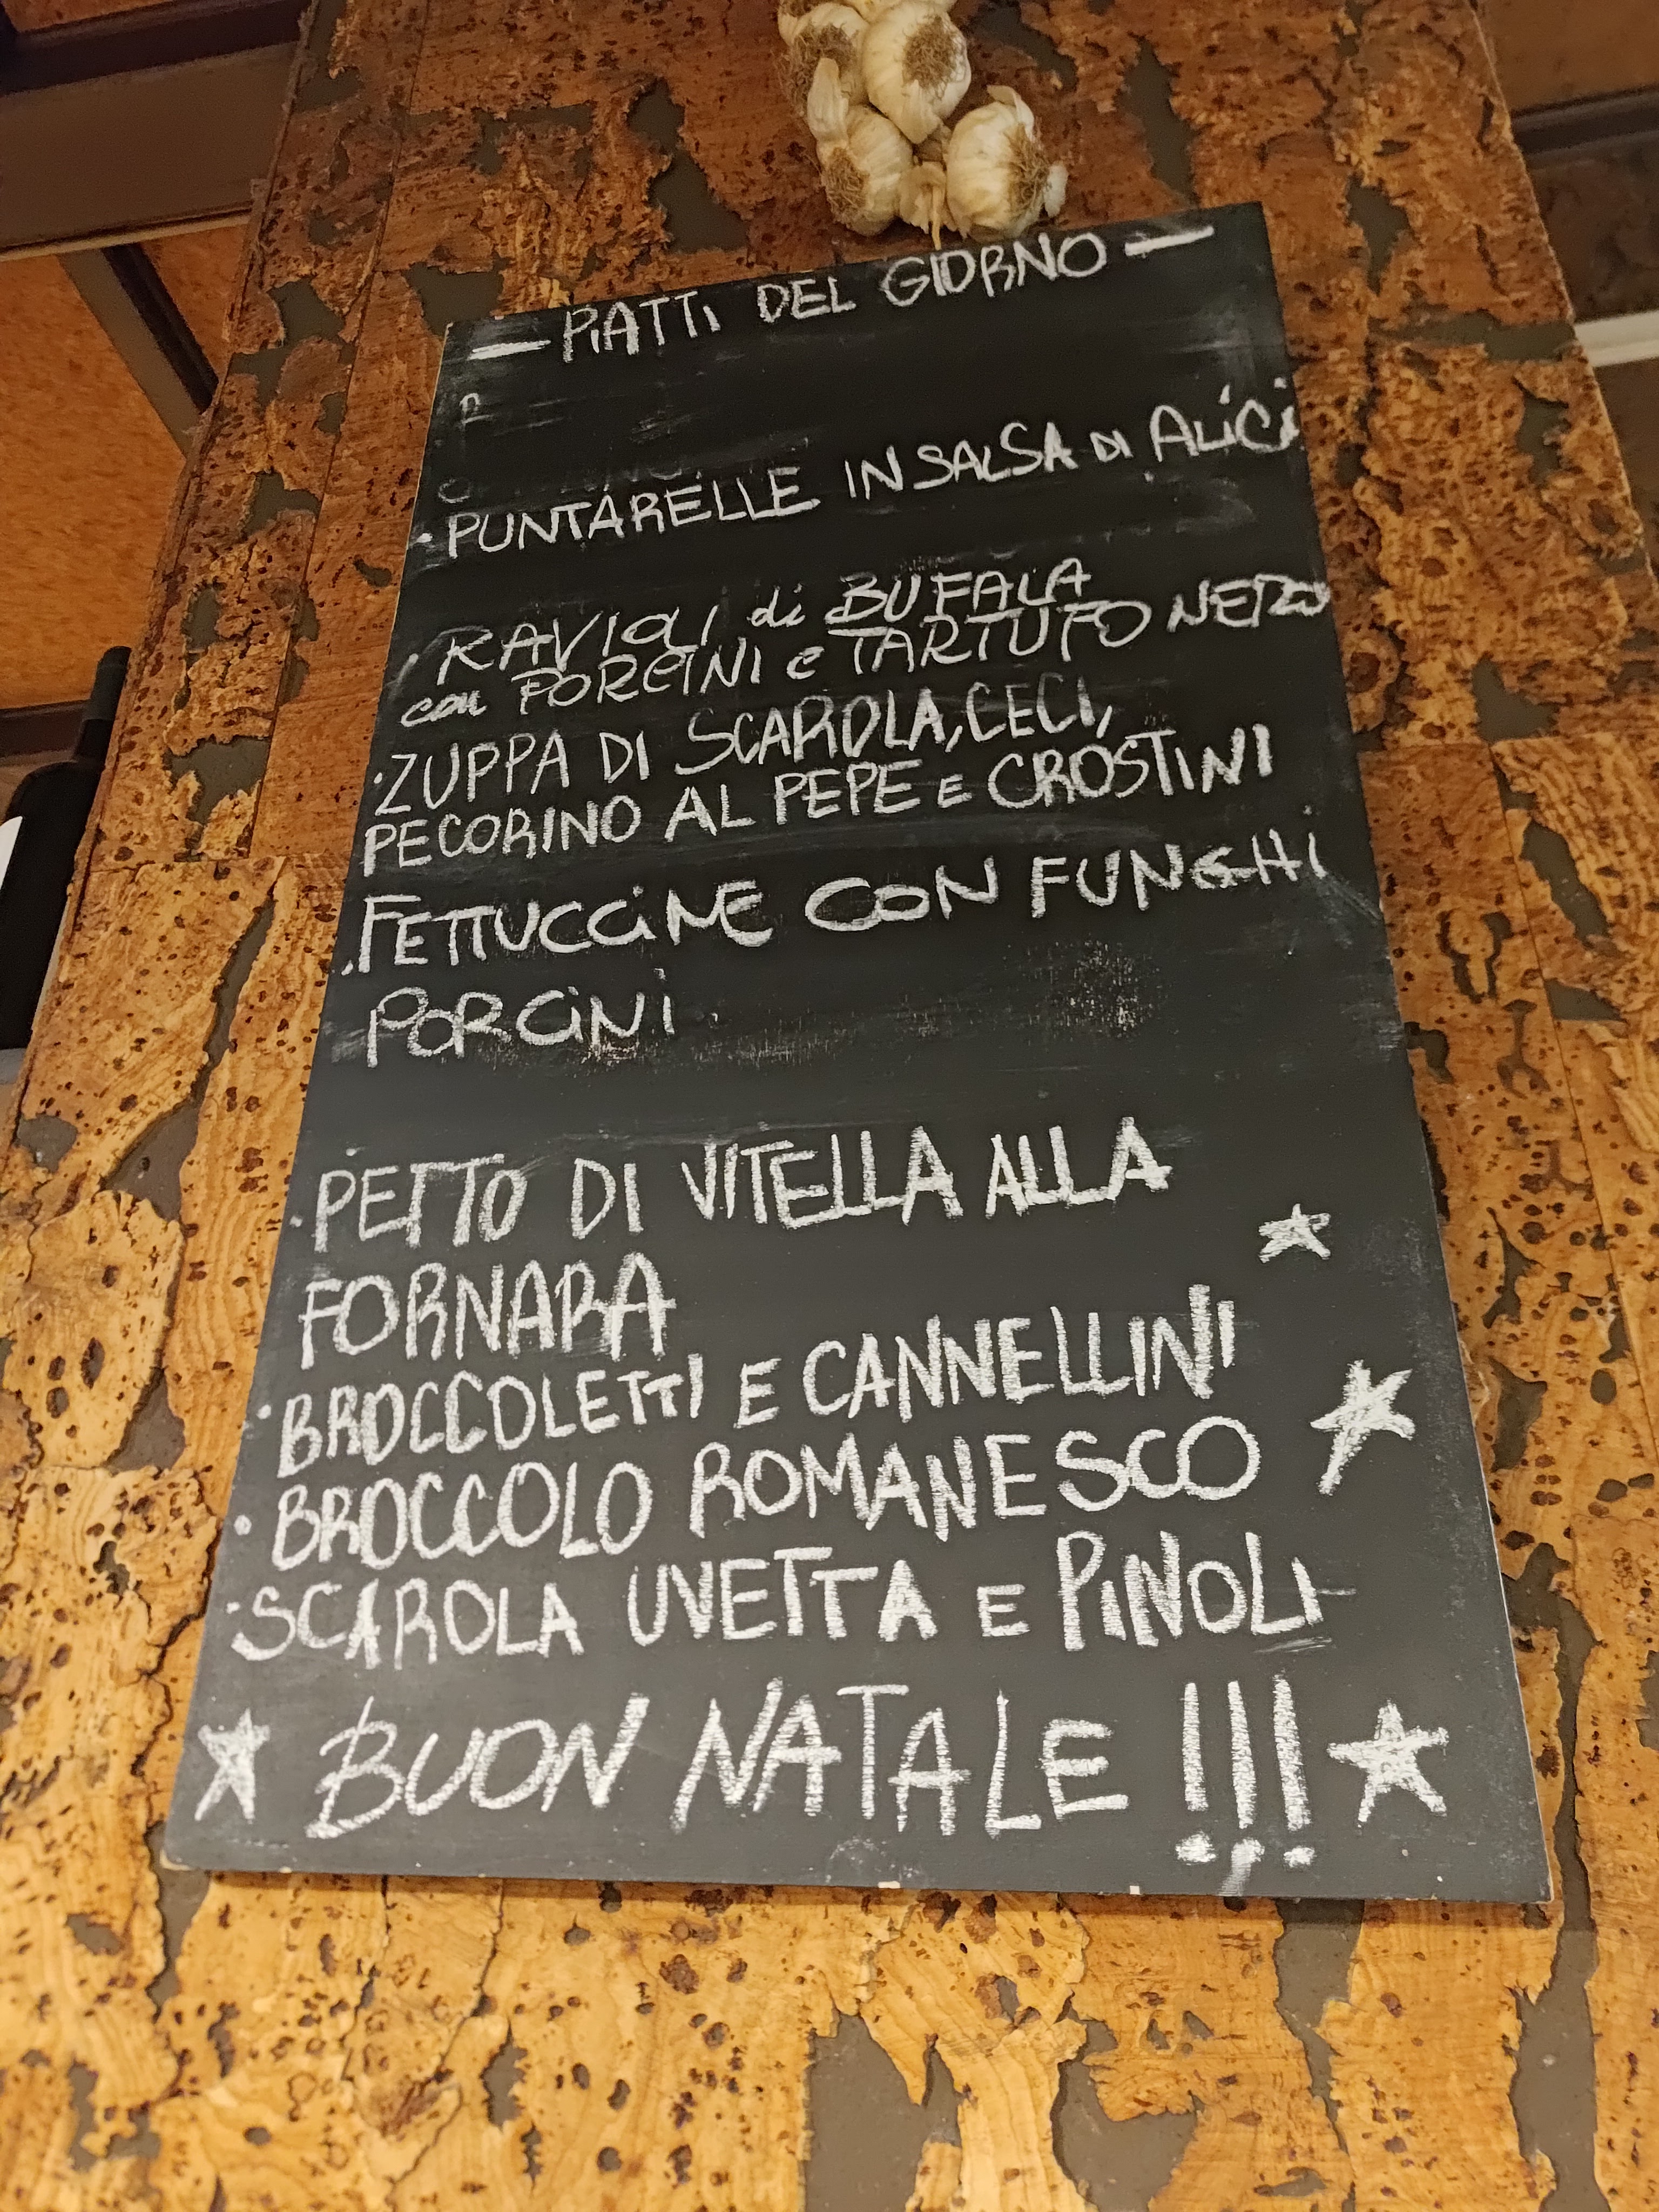 — PiATTi DEL GIORNO —
· PUNTARELLE IN SALSA DI ALiCi
· RAVIOLI di BUFALA
con PORCINI e TARTUFO NERO
· ZUPPA DI SCAROLA, CECI,
PECORINO AL PEPE E CROSTINI
· FETTUCCiNE CON FUNGHi
PORCiNi
· PETTO DI VITELLA ALLA
FORNARA
· BROCCOLETTI E CANNELLINI
· BROCCOLO ROMANESCO
· SCAROLA UVETTA E PiNOLI
BUON NATALE !!!